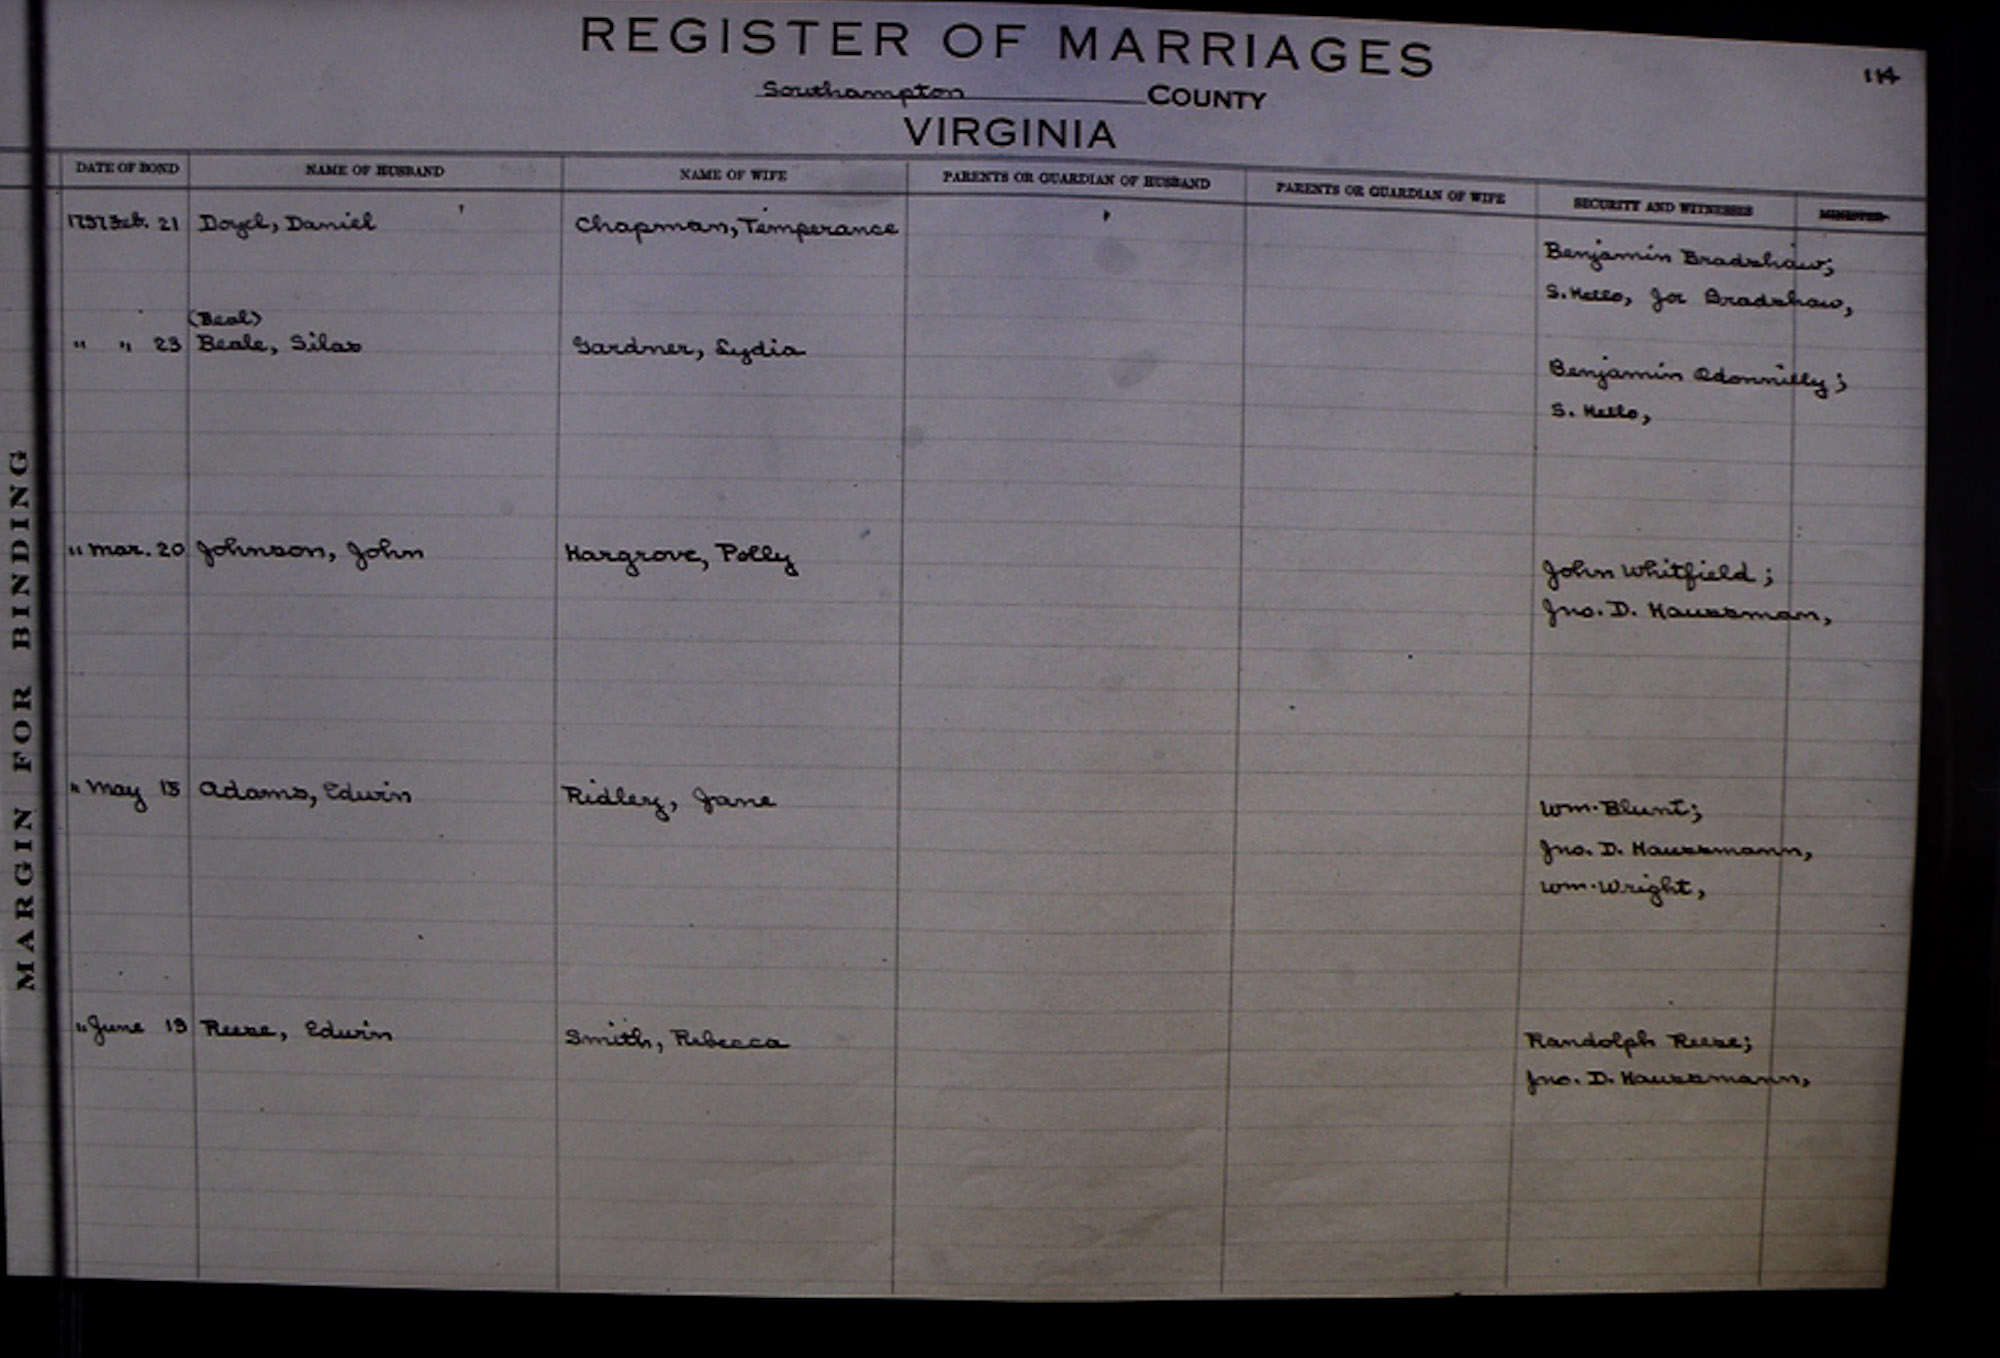 REGISTER OF MARRIAGES
114
Southampton COUNTY
VIRGINIA
DATE OF BOND NAME OF HUSBAND NAME OF WIFE PARENTS OR GUARDIAN OF HUSBAND PARENTS OR GUARDIAN OF WIFE SECURITY AND WITNESSES MINISTER
1797 Feb. 21 Doyel, Daniel Chapman, Temperance
Benjamin Bradshaw;
S. Kello, Joe Bradshaw,
(Beal)
" " 23 Beale, Silas Gardner, Lydia
Benjamin Odonnilly;
S. Kello,
" Mar. 20 Johnson, John Hargrove, Polly
John Whitfield;
Jno. D. Haussman,
" May 15 Adams, Edwin Ridley, Jane
Wm. Blunt;
Jno. D. Haussmann,
Wm. Wright,
" June 19 Reese, Edwin Smith, Rebecca
Randolph Reese;
Jno. D. Haussmann,
MARGIN FOR BINDING